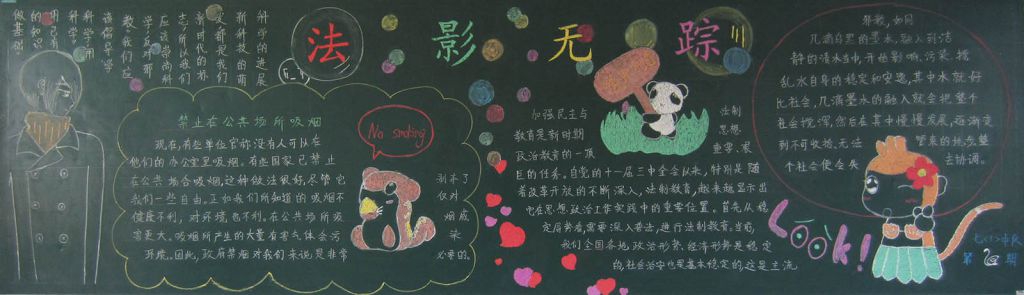 法影无踪
科学的进展
新科技的萌
发都是我们
新时代的标
志,所以我们
应该崇尚科
学,反对邪
教,我们应
该倡导学
科学,用
科学,
用已有
的知识
做基础
禁止在公共场所吸烟
No smoking
现在,有些单位官称没有人可以在
他们的办公室里吸烟。有些国家已禁止
在公共场合吸烟,这种做法很好,尽管它
剥夺了
我们一些自由。正如我们所知道的吸烟不
仅对
健康不利,对环境也不利。在公共场所吸
烟成
害更大。吸烟所产生的大量有害气体会污
染
环境。因此,政府禁烟对我们来说是非常
必要的。
加强民主与
法制
教育是新时期
思想
政治教育的一项
重要
巨的任务。自党的十一届三中全会以来,特别是随
着改革开放的不断深入,法制教育,越来越显示出
它在思想政治工作实践中的重要位置。首先从稳
定局势看,需要深入普法,进行法制教育。当前,
我们全国各地政治形势、经济形势是稳定
的,社会治安也是基本稳定的,这是主流
邪教,如同
几滴乌黑的墨水,融入到洁
静的清水当中,开始影响、污染、搅
乱水自身的稳定和安逸,其中水就好
比社会,几滴墨水的融入就会把整个
社会搅浑,然后在其中慢慢发展,逐渐变
到不可收拾、无法
管束的地步,整
个社会便会失
去协调。
Look!
第2期